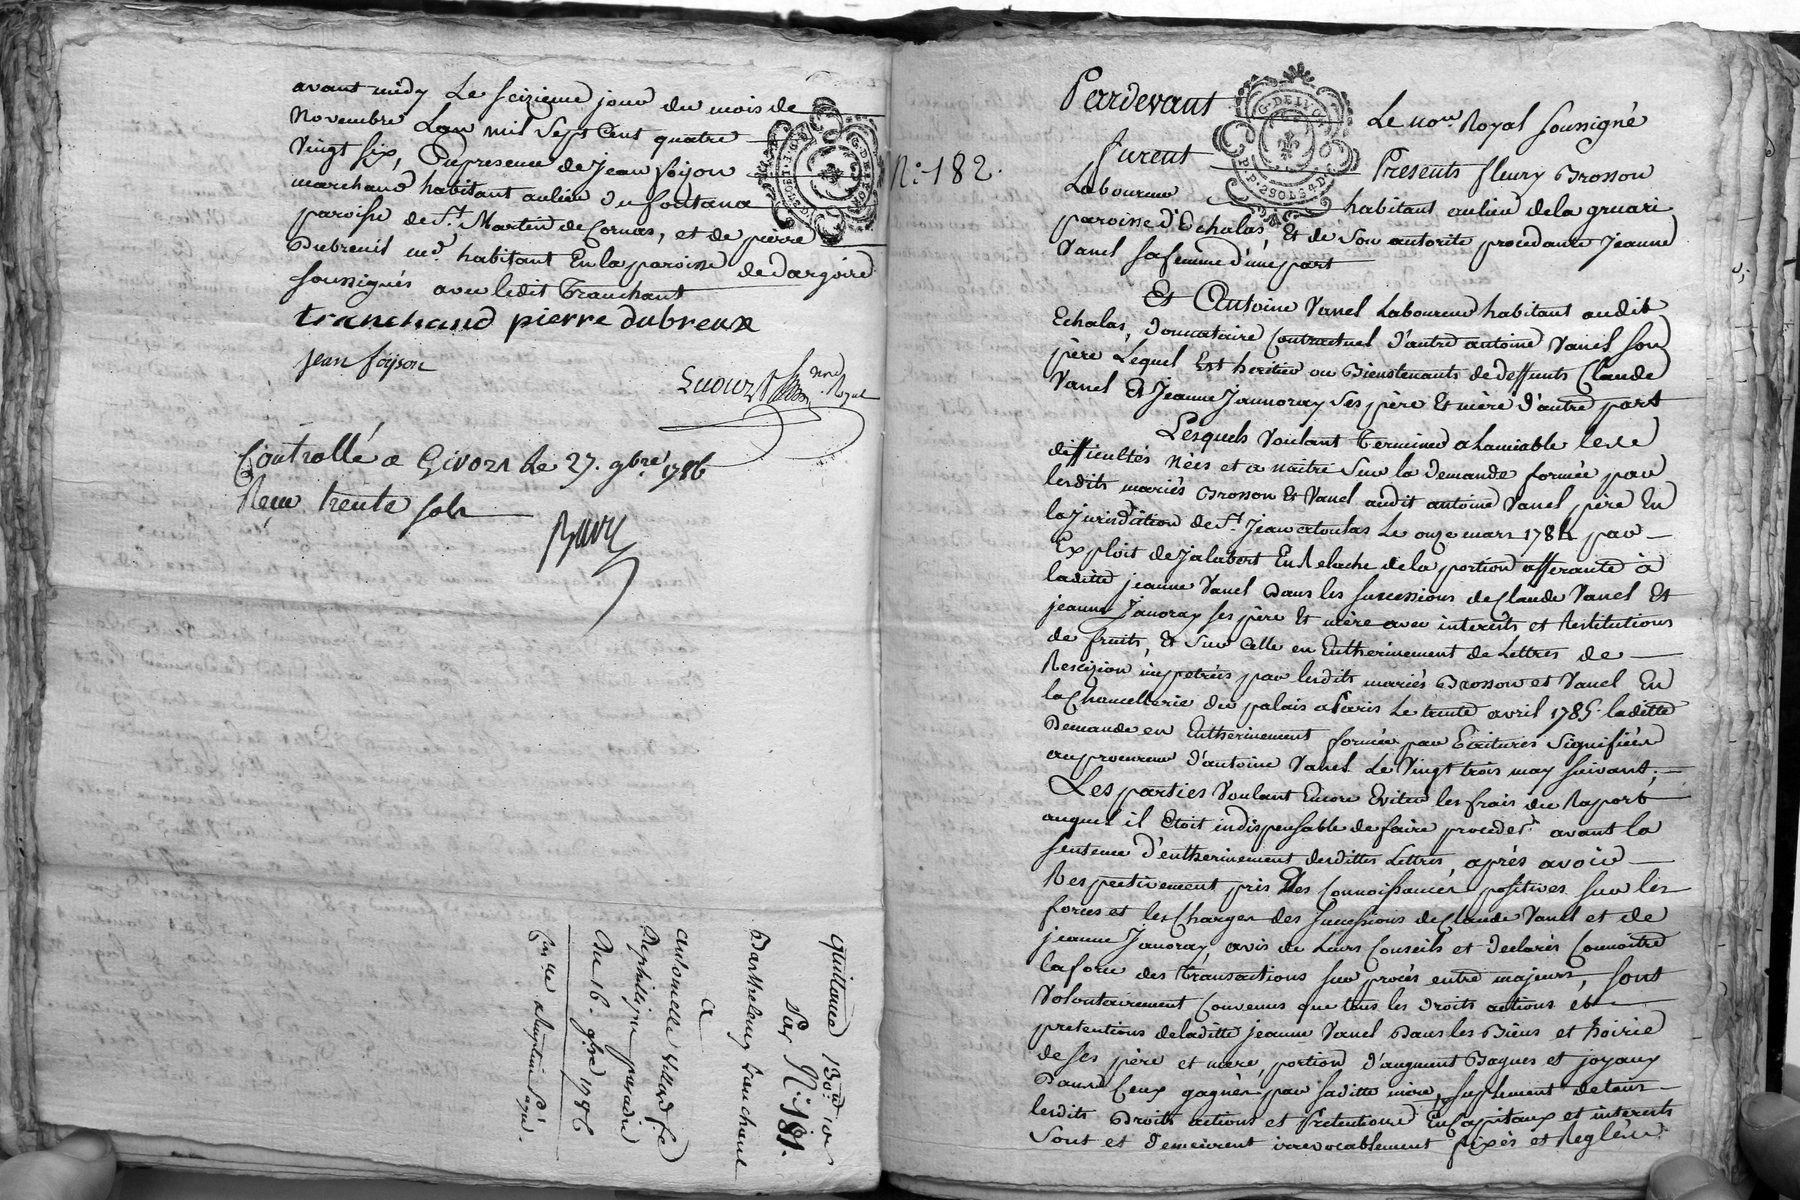 avant midy Le seizieme jour du mois de
Novembre Lan mil sept cent quatre
vingt six, En presence de Jean foijon
marchand habitant au lieu du fontana
paroisse de St. Martin de Cornas, et de pierre
Dubreuil md habitant En la paroisse de dargoire
soussignés avec ledit Tranchant
tranchand pierre dubreux
jean foijon
Nore. Royal
Controllé a Givors Le 27. 9bre 1786
Reçu trente sols
quittance
Par N: 181.
Barthelemy tranchant
a
antoinette villard fe
De philippe
Du 16. 9bre 1786
N: 182.
G. DE LYON
Pardevant Le nore Royal soussigné
furent Presents fleury Brosson
Laboureur habitant au lieu de la gruari
paroisse d'Echalas Et de son autorité procedante Jeanne
Vanel sa femme d'une part
Et Antoine Vanel Laboureur habitant audit
Echalas, donnataire Contractuel d'autre antoine Vanel son
père Lequel Est heritier ou Bienstenants de deffunts Claude
Vanel Et Jeanne Jannoray ses père Et mère d'autre part
Lesquels voulant Terminer a Lamiable les
difficultés nées et a naitre sur la demande formée par
lesdits mariés Brosson Et Vanel audit antoine Vanel père En
la jurisdiction de St. Jean a toulas Le onze mars 1784 par
Exploit de jalabert En Relache de la portion afferante à
laditte jeanne Vanel Dans les successions de Claude Vanel Et
jeanne Janoray ses père Et mère avec interests et Restitutions
de fruits, Et sur Celle en Entherinement de Lettres de
Rescizion impetrées par lesdits mariés Brosson et Vanel En
la Chancellerie du palais a Paris Le trente avril 1785. laditte
Demande en Entherinement formée par Ecritures signifiées
au procureur d'antoine Vanel Le Vingt trois may suivant;
Les parties Voulant Encore Eviter les frais du Raport
auquel il Etoit indispensable de faire proceder avant la
sentence d'entherinement desdittes Lettres, après avoir
Respectivement pris Des Connoissances positives sur les
forces et les Charges des successions de Claude Vanel et de
jeanne Janoray avis de Leurs Conseils et declarés Connoitre
la force des transactions sur procès entre majeurs, sont
volontairement Convenus que tous les droits actions et
pretentions de laditte jeanne Vanel Dans les Biens et hoirie
de ses père et mere, portion d'augment Bagues et joyaux
Dans Ceux gagnés par saditte mère, suplement de tous
lesdits Droits actions et Pretentions En Capitaux et interests
sont et demeurent irrevocablement fixés et Reglés